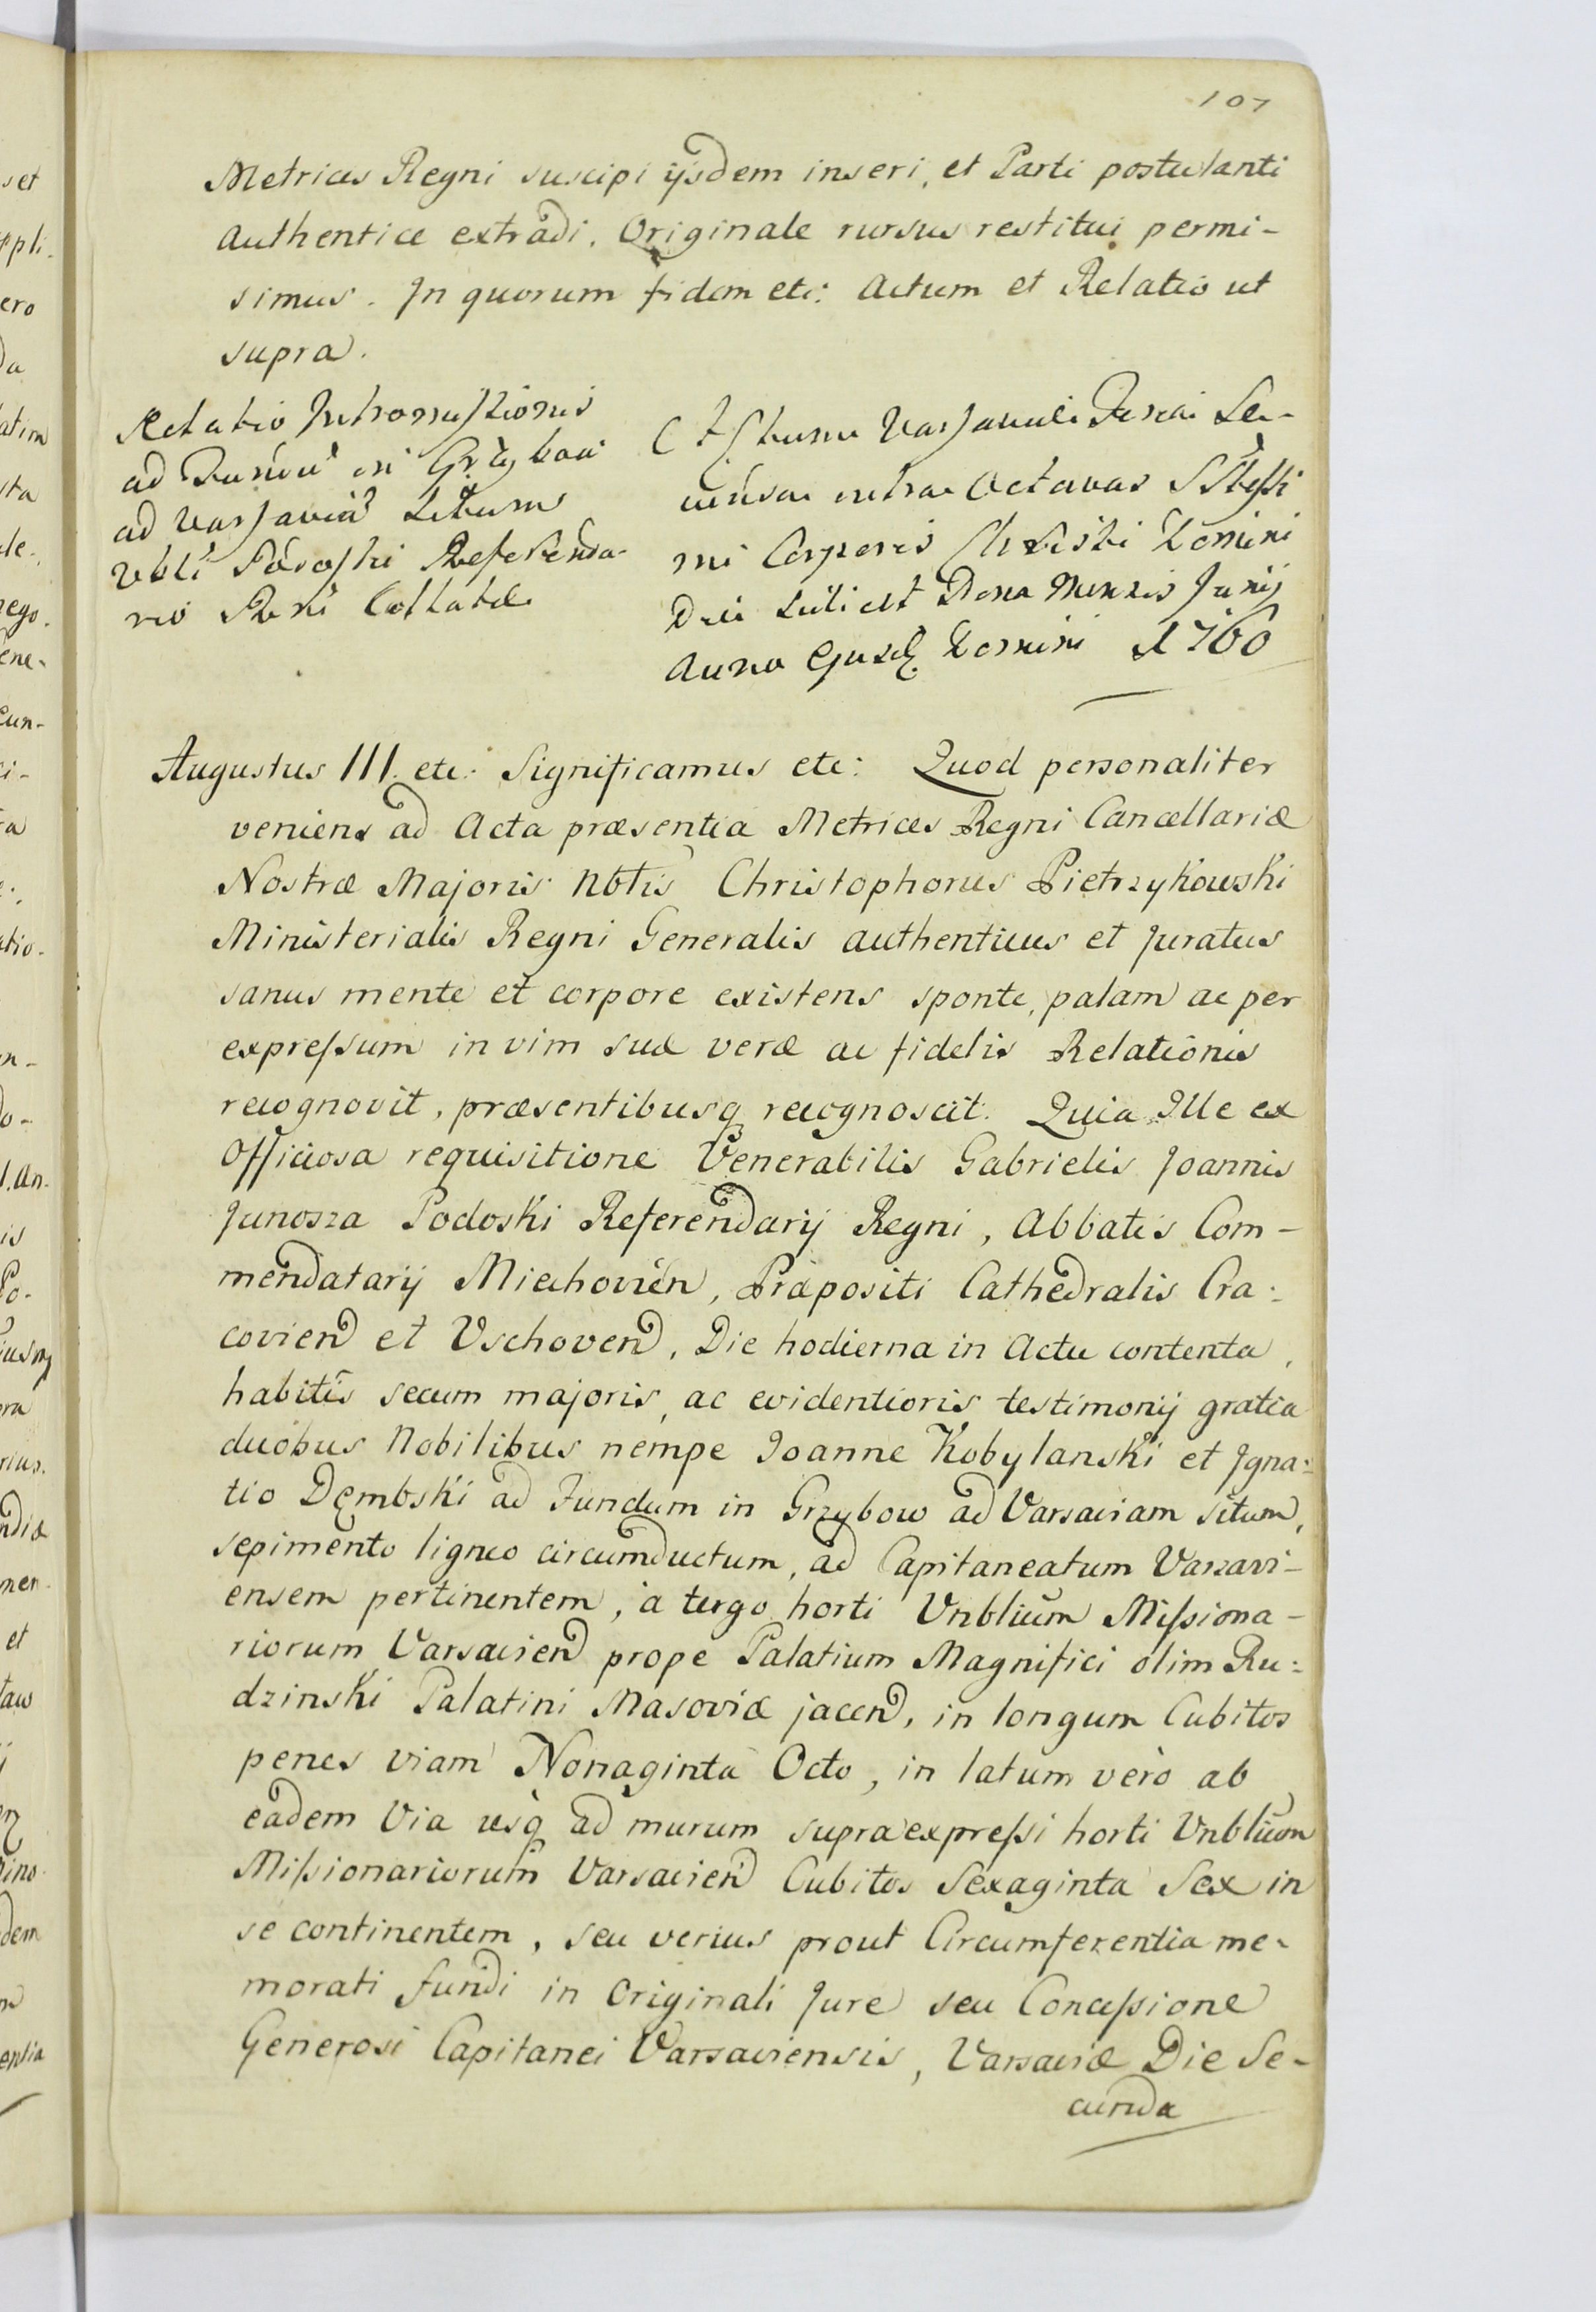 107
Metrices Regni suscipi ijsdem inseri, et Parti postulanti
authentice extradi. Originale rursus restitui permi-
simus. In quorum fidem etc: Actum et Relatio ut
supra.
Relatio Intromissionis
ad Fundũ in Grzybow
ad Varsaviã situm
Vbli Podoski Referenda-
rio Regni Collatæ
Actum Varsaviæ Feria Se-
cunda intra Octavas SSttissi
mi Corporis Christi Domini
Die scilicet Nona Mensis Junij
Anno Ejusdȩ Domini 1760
Augustus III. etc: Significamus etc: Quod personaliter
veniens ad Acta præsentia Metrices Regni Cancellariæ
Nostræ Majoris Nbtis Christophorus Pietrzykowski
Ministerialis Regni Generalis authenticus et Juratus
sanus mente et corpore existens sponte, palam ac per
expreſsum in vim suæ veræ ac fidelis Relationis
recognovit, præsentibusq recognoscit. Quia Ille ex
Officiosa requisitione Venerabilis Gabrielis Joannis
Junosza Podoski Referendarij Regni, Abbatis Com-
mendatarij Miechovien, Præpositi Cathedralis Cra:
covien et Vschoven, Die hodierna in Actu contenta,
habitis secum majoris, ac evidentioris testimonij gratia
duobus Nobilibus nempe Joanne Kobylanski et Igna:
tio Dembski ad Fundum in Grzybow ad Varsaviam situm,
sepimento ligneo circumductum, ad Capitaneatum Varsavi-
ensem pertinentem, à tergo horti Vnbliũm Miſsiona-
riorum Varsavien prope Palatium Magnifici olim Ru:
dzinski Palatini Masoviæ jacen, in longum Cubitos
penes viam Nonaginta Octo, in latum verò ab
eadem Via usq ad murum supra expreſsi horti Vnbliũm
Miſsionariorum Varsavien Cubitos Sexaginta Sex in
se continentem, seu verius prout Circumferentia me-
morati fundi in Originali Jure seu Conceſsione
Generosi Capitanei Varsaviensis, Varsaviæ Die Se-
cunda